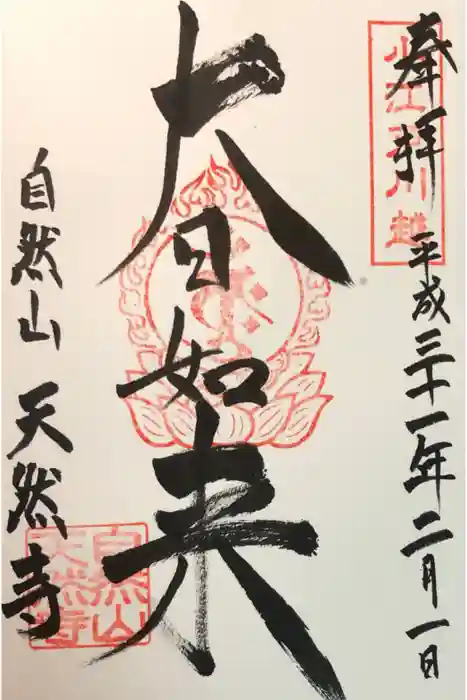 奉拝
平成三十一年二月一日
小江戸川越
大日如来
自然山 天然寺
自然山
天然寺